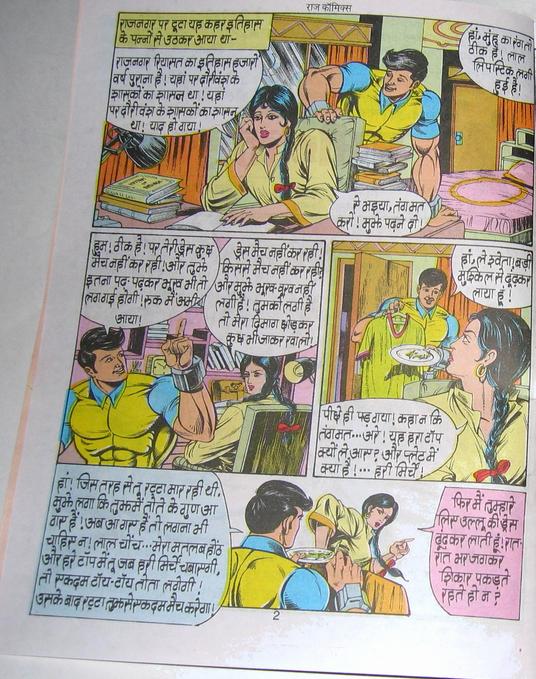 राज कॉमिक्स
राजनगर पर टूटा यह कहर इतिहास
के पन्नों से उठकर आया था-
राजनगर रियासत का इतिहास हजारों
वर्ष पुराना है! यहां पर दौरीवंश के
शासकों का शासन था! यहां
पर दौरी वंश के शासकों का शासन
था! याद हो गया!
हां, मुंह का रंग तो
ठीक है! लाल
लिपस्टिक लगी
हुई है!
ऐ भइया, तंग मत
करो! मुझे पढ़ने दो!
हुम! ठीक है! पर तेरी ड्रेस कुछ
मैच नहीं कर रही! और तुझे
इतना पढ़-पढ़कर भूख भी तो
लग गई होगी! रुक मैं अभी
आया!
ड्रेस मैच नहीं कर रही!
किससे मैच नहीं कर रही?
और मुझे भूख-वूख नहीं
लगी है! तुमको लगी है
तो मेरा दिमाग छोड़कर
कुछ भी जाकर खा लो!
हां, ले श्वेता! बड़ी
मुश्किल से ढूंढकर
लाया हूं!
पीछे ही पड़ गया! कहा न कि
तंग मत... अरे! यह हरा टॉप
क्यों ले आए? और प्लेट में
क्या है!... हरी मिर्चें!
हां! जिस तरह से तू रट्टा मार रही थी,
मुझे लगा कि तुझमें तोते के गुण आ
गए हैं! अब आ गए हैं तो लगना भी
चाहिए न! लाल चोंच... मेरा मतलब होंठ
और हरे टाप में तू जब हरी मिर्च चबाएगी,
तो एकदम टॉय-टॉय तोता लगेगी!
उसके बाद रट्टा तुझसे एकदम मैच करेगा!
फिर मैं तुम्हारे
लिए उल्लू की ड्रेस
ढूंढकर लाती हूं! रात-
रात भर जगकर
शिकार पकड़ते
रहते हो न?
2